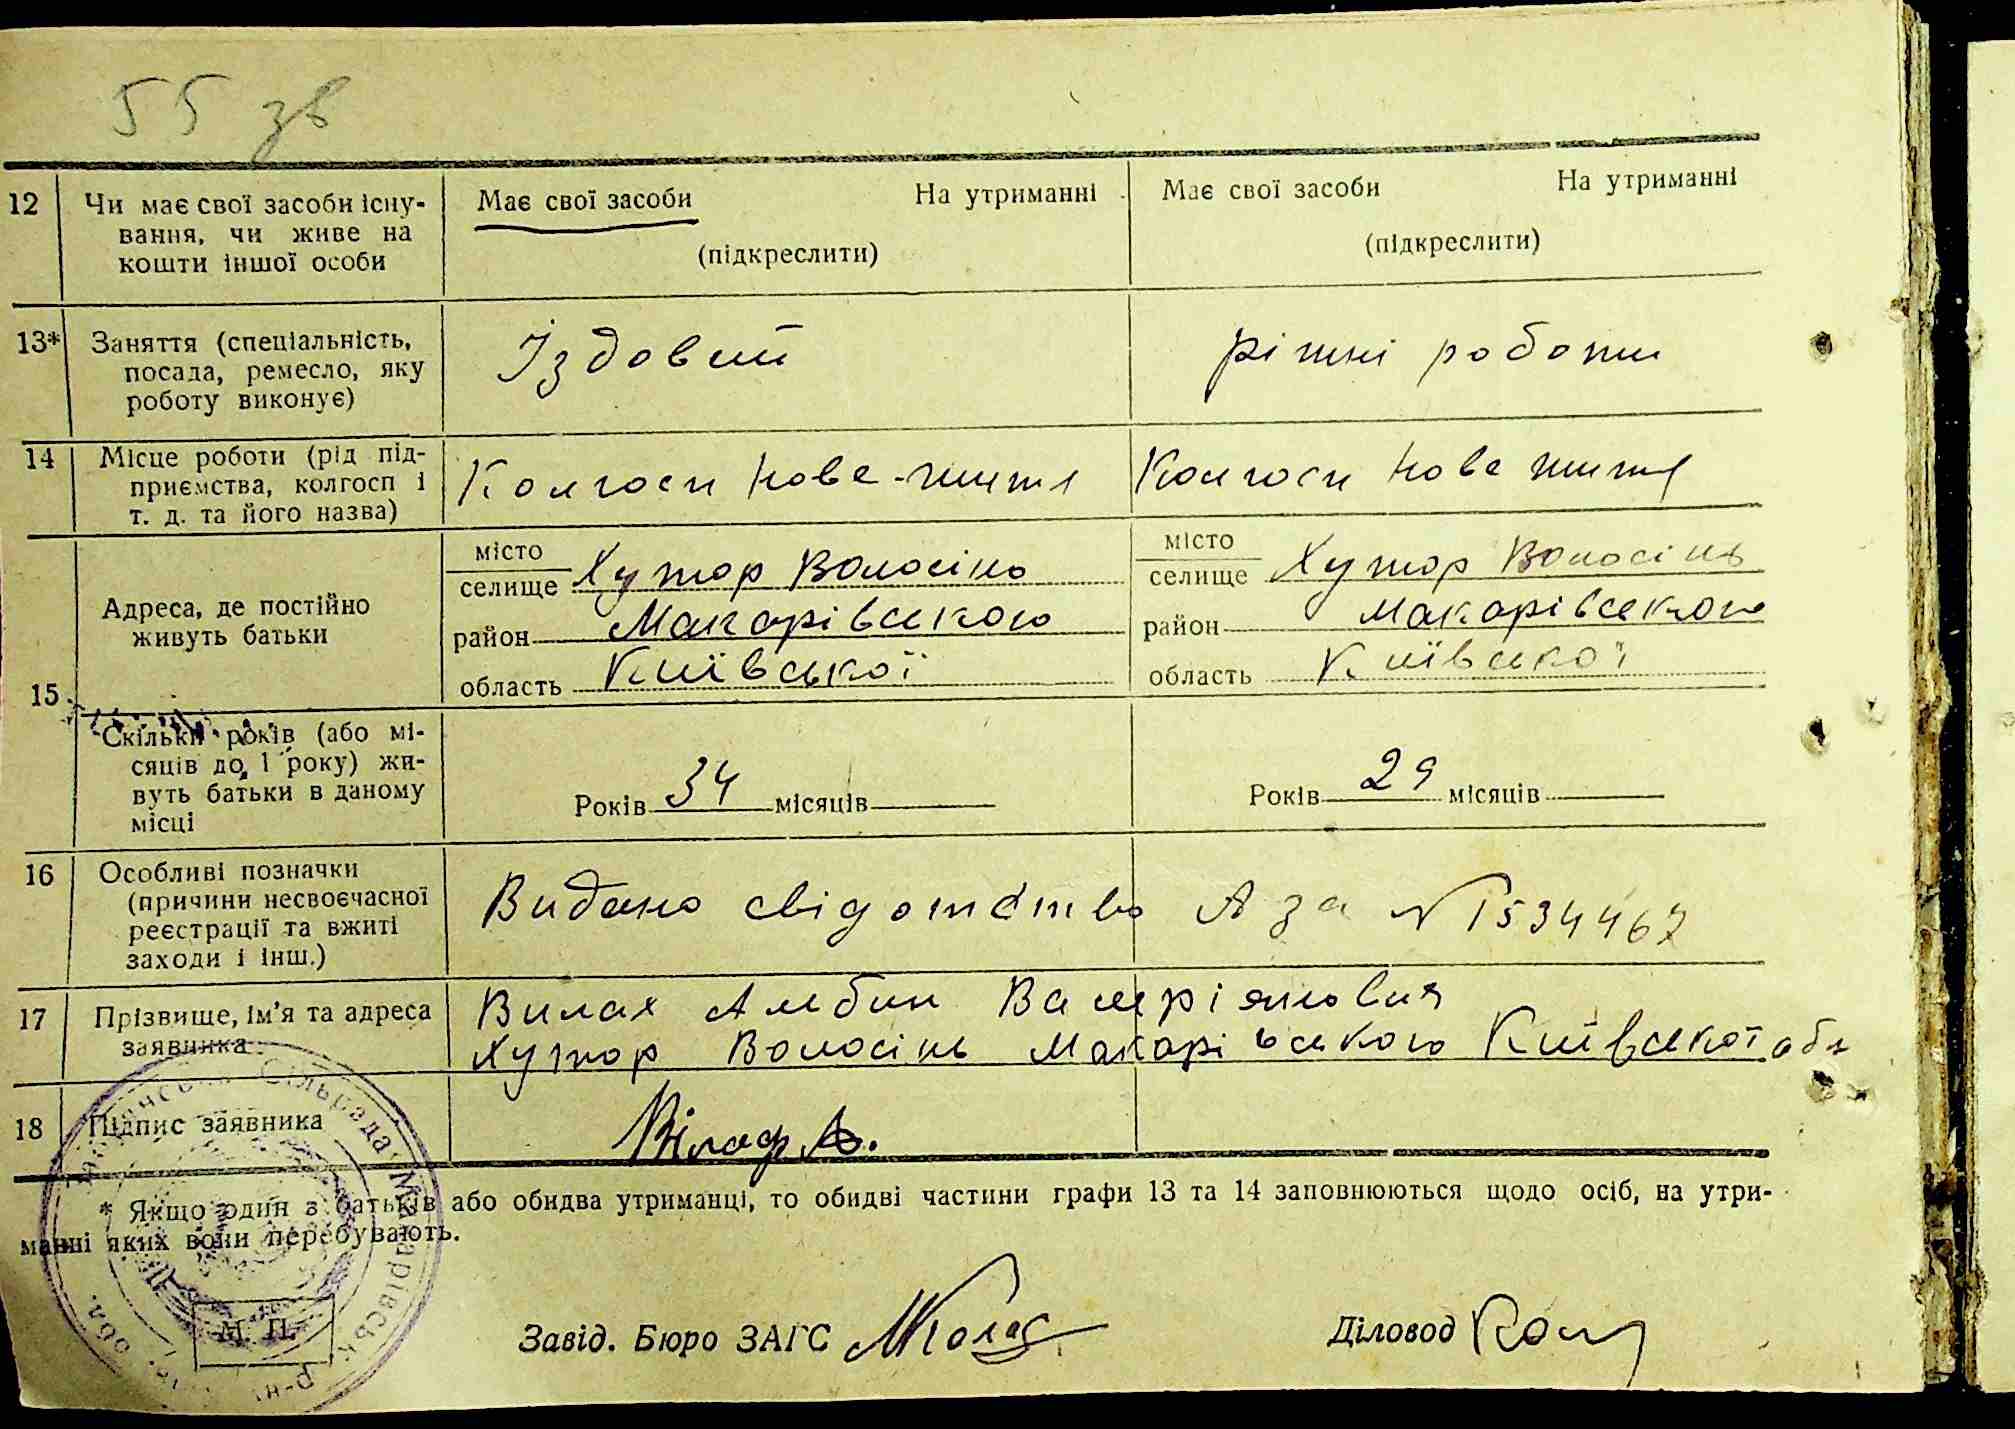 55 зв
12 Чи має свої засоби існу- Має свої засоби На утриманні Має свої засоби На утриманні
вання, чи живе на
кошти іншої особи (підкреслити) (підкреслити)
13* Заняття (спеціальність, Їздовий ріжні роботи
посада, ремесло, яку
роботу виконує)
14 Місце роботи (рід під- Колгосп Нове-життя Колгосп Нове життя
приємства, колгосп і
т. д. та його назва)
15 Адреса, де постійно живуть батьки
місто
селище Хутор Волосінь
район Макарівського
область Київської
місто
селище Хутор Волосінь
район Макарівського
область Київської
Скільки років (або мі-
сяців до 1 року) жи-
вуть батьки в даному
місці
Років 34 місяців Років 29 місяців
16 Особливі позначки
(причини несвоєчасної
реєстрації та вжиті
заходи і інш.)
Видано свідотство А за № 1534467
17 Прізвище, ім'я та адреса
заявника
Вилах Альбин Валеріянович
Хутор Волосінь Макарівського Київської обл
18 Підпис заявника
* Якщо один з батьків або обидва утриманці, то обидві частини графи 13 та 14 заповнюються щодо осіб, на утри-
манні яких вони перебувають.
Сільрада Макарівськ. р-ну обл.
М. П.
Завід. Бюро ЗАГС Діловод